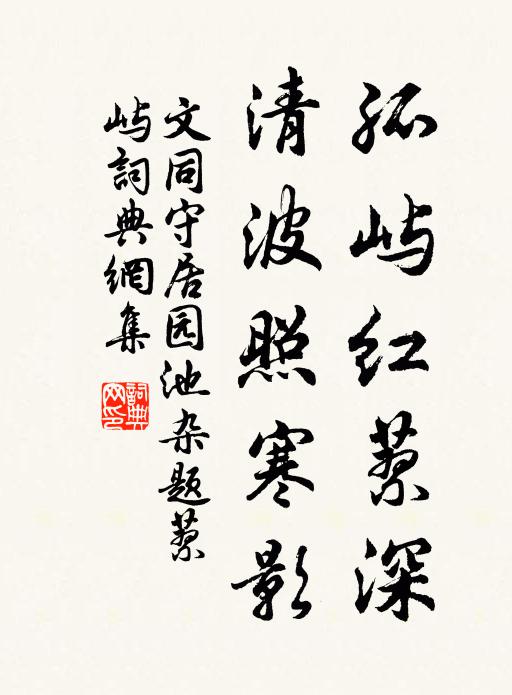 孤屿红蓼深
清波照寒影
文同守居园池杂题蓼
屿詞典網集
詞典
网印